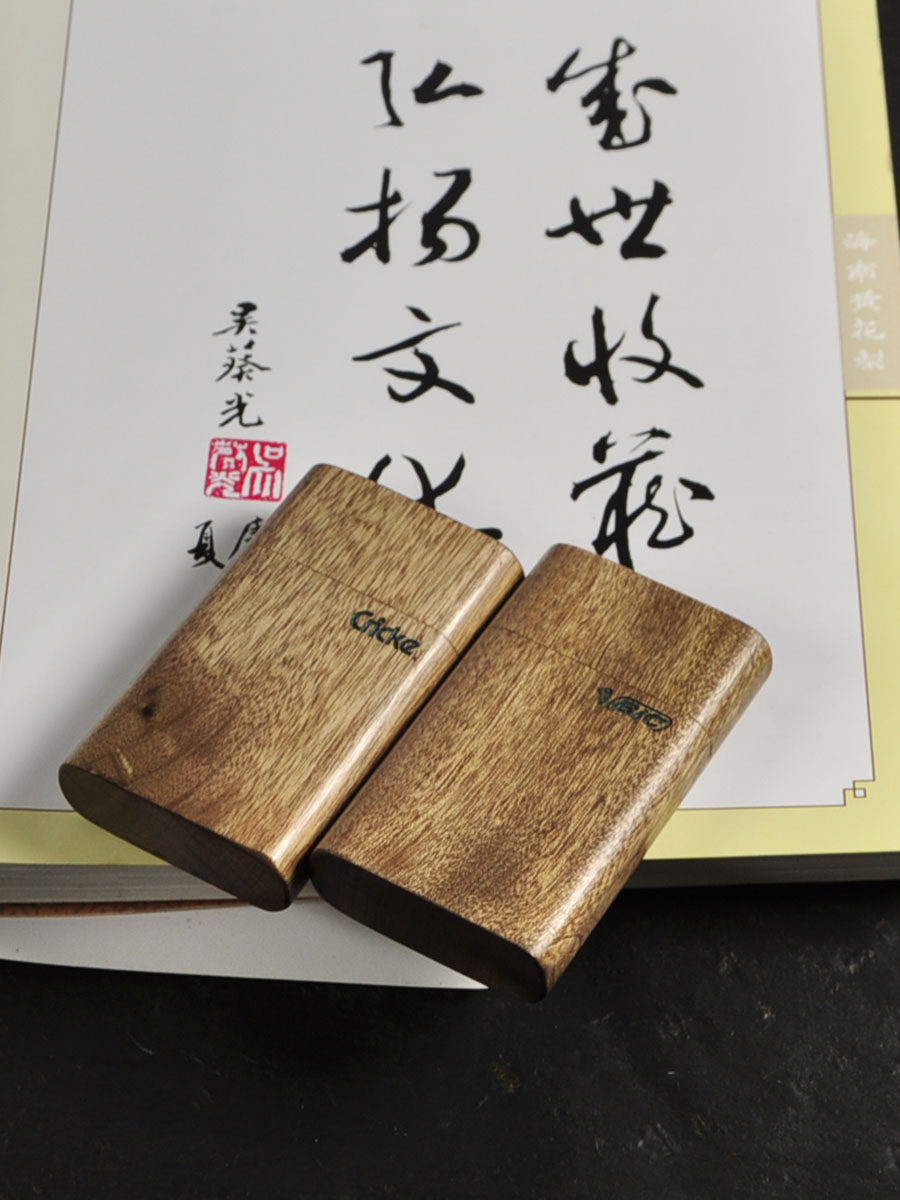 盛世收藏
弘扬文化
吴葵光
夏
海南黄花梨
Cricke